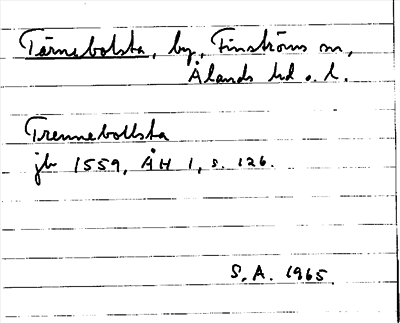 Tärnebolsta, by, Finströms sn,
Ålands hd o. l.
Trennebollsta
jb 1559, ÅH 1, s. 126.
S. A. 1965.